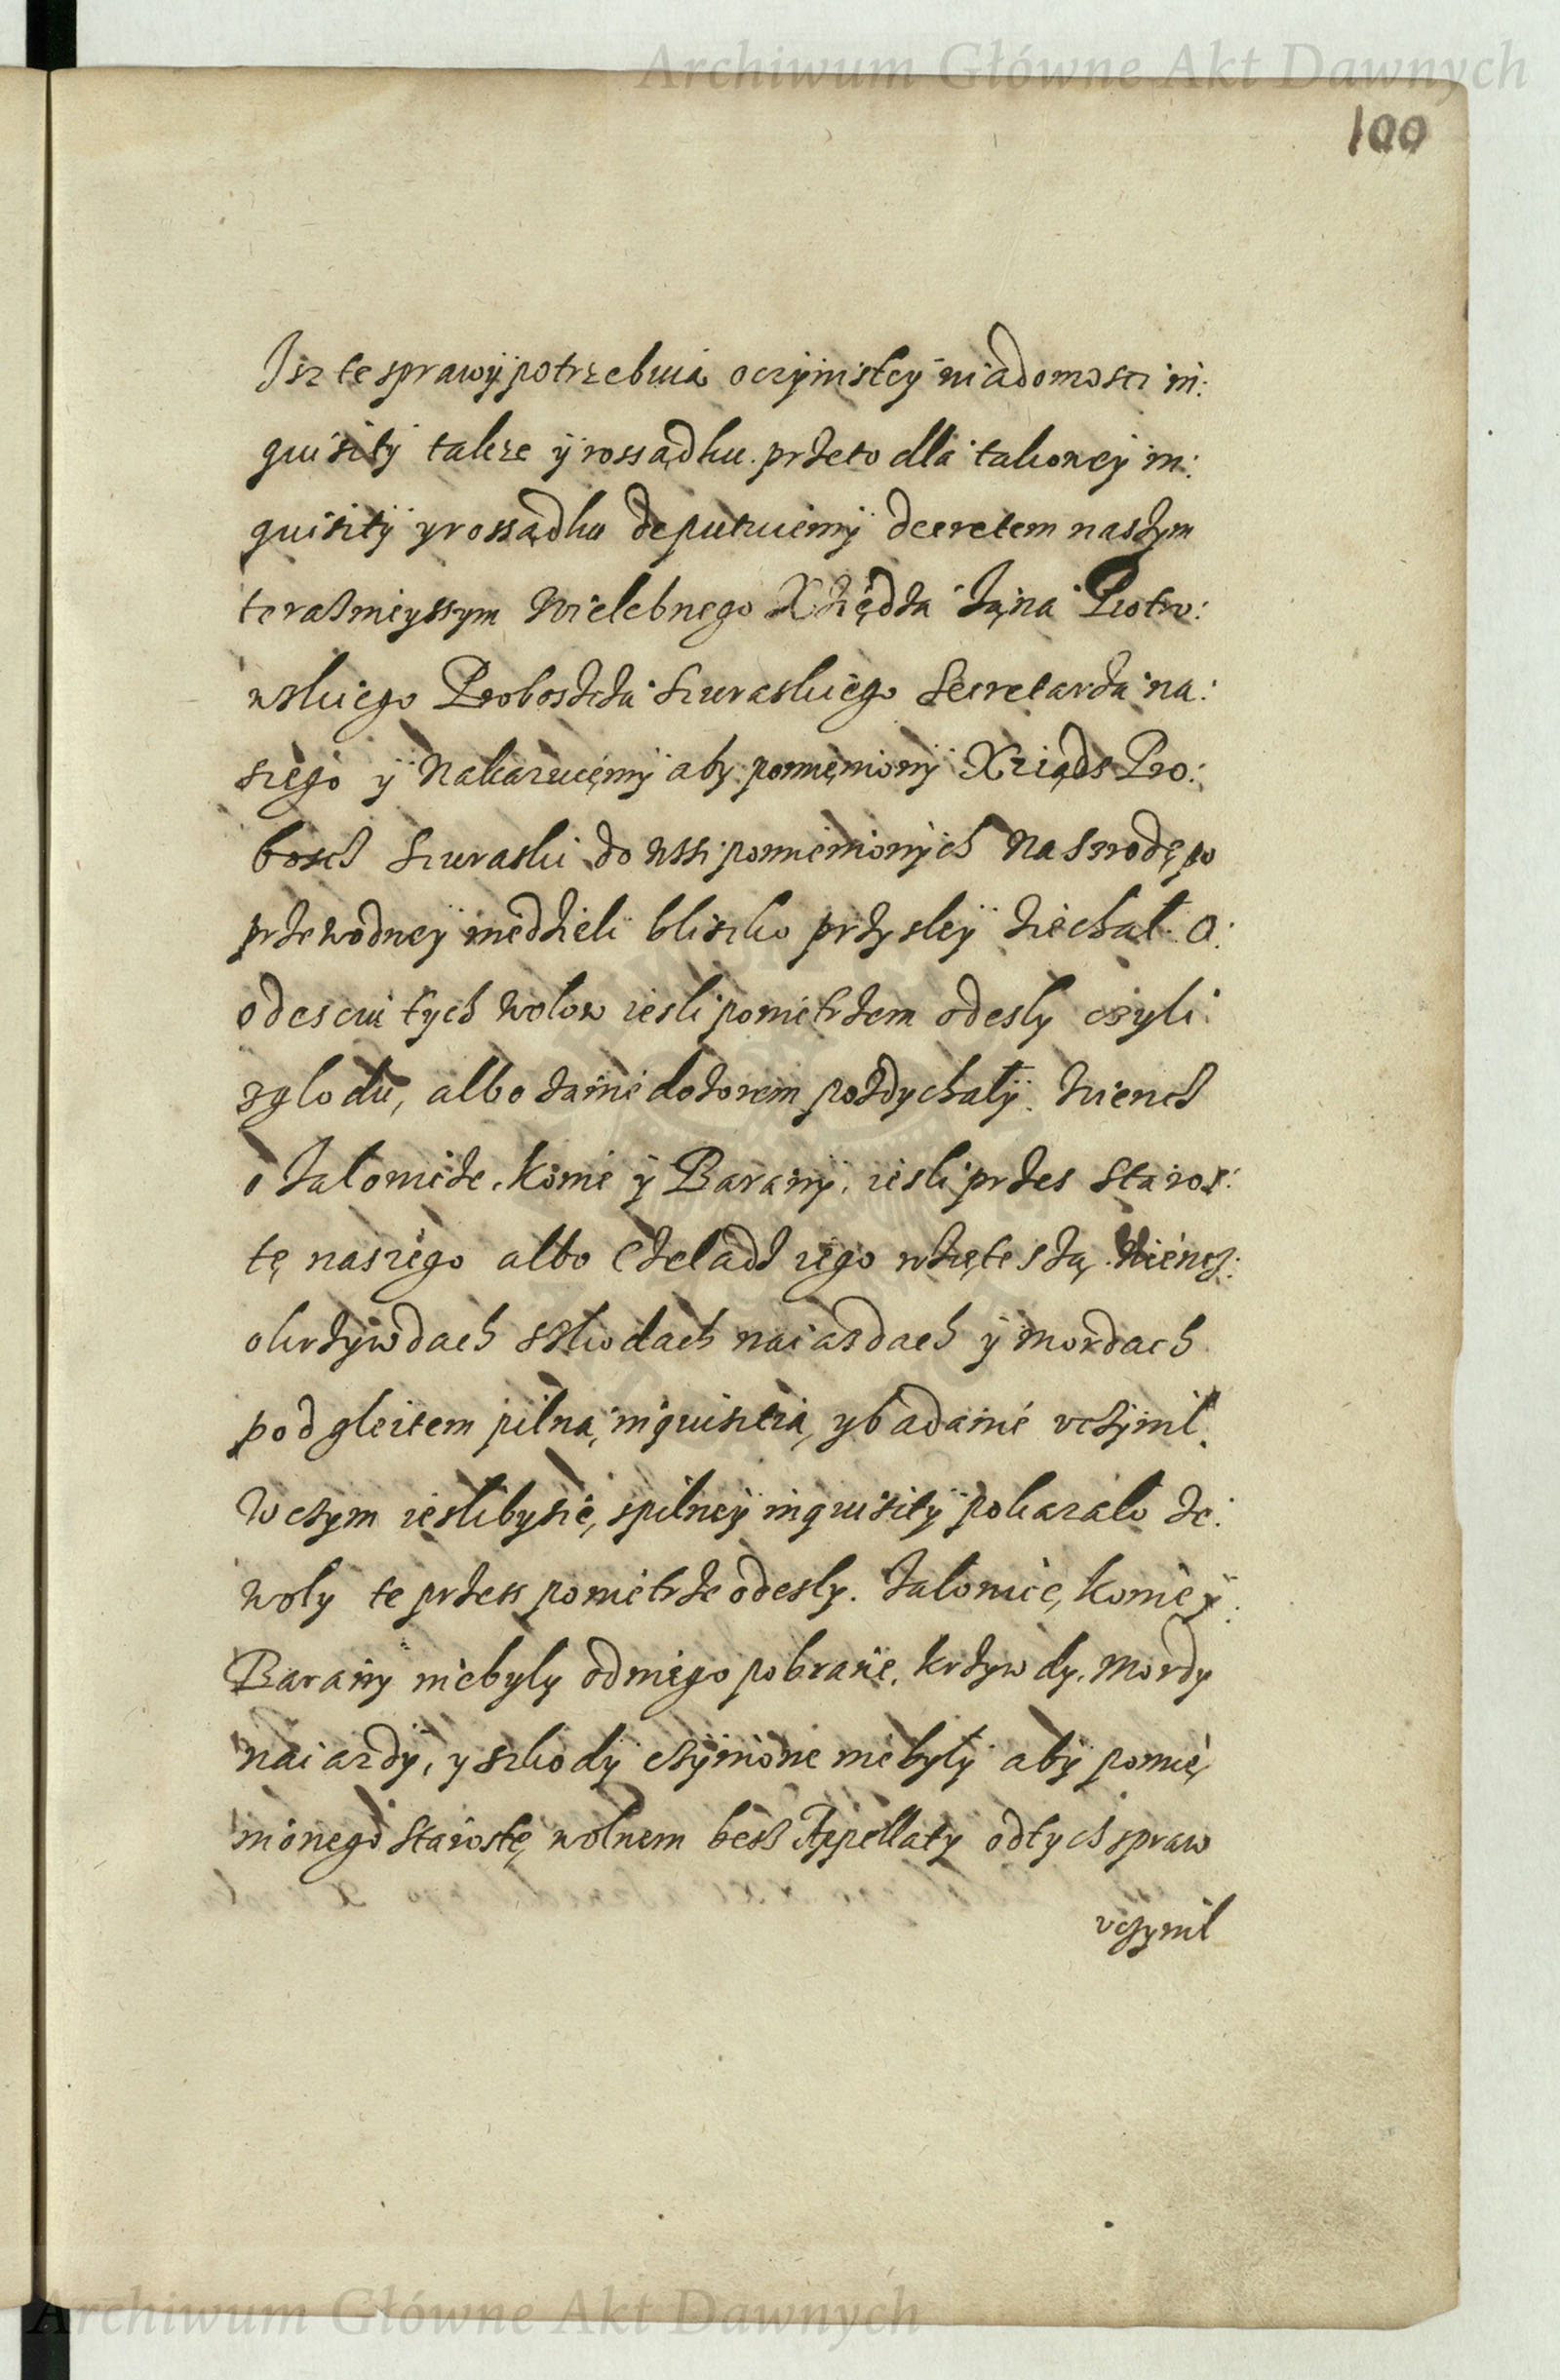 Archiwum Główne Akt Dawnych
100
Isz te sprawÿ potrzebuią oczÿwistey wiadomosci in:
quisitÿ także ÿ rossądku. przeto dla takowey in:
quisitÿ y rossądku deputuiemÿ decretem naszym
terasznieyssym Wielebnego Xziędza Jana Piotro:
wskiego Proboszcza Suraskiego Secretarza na:
szego ÿ Nakazuiemÿ aby pomienionÿ Xziądz Pro:
boscz Suraski do wssi pomienionÿch na Srodę po
przewodney niedzieli blisko przysleÿ ziechał. O:
odesciu tych wolow iesli pomietrzem odesly czyli
z glodu, albo za niedozorem pozdychalÿ. Tiencz
o Jalowize. Konie ÿ Baranÿ. iesli przes Staros:
tę naszego albo Czeladz iego wzięte są. Tiencz:
o krzywdach szkodach naiazdach ÿ mordach
pod gleitem pilną inquisitią, y badanie uczÿnil.
W czym ieslibysię, s pilneÿ inquisitÿ pokazało że:
woly te przess pomietrze odesly. Jalowice, konie ÿ:
Baranÿ niebyly od niego pobrane. krzywdy. Mordy
naiazdÿ, y szkodÿ czÿnione niebyłÿ abÿ pomie,
nionego Starostę, wolnem besz Appellatÿ od tych spraw
uczynil
Archiwum Główne Akt Dawnych